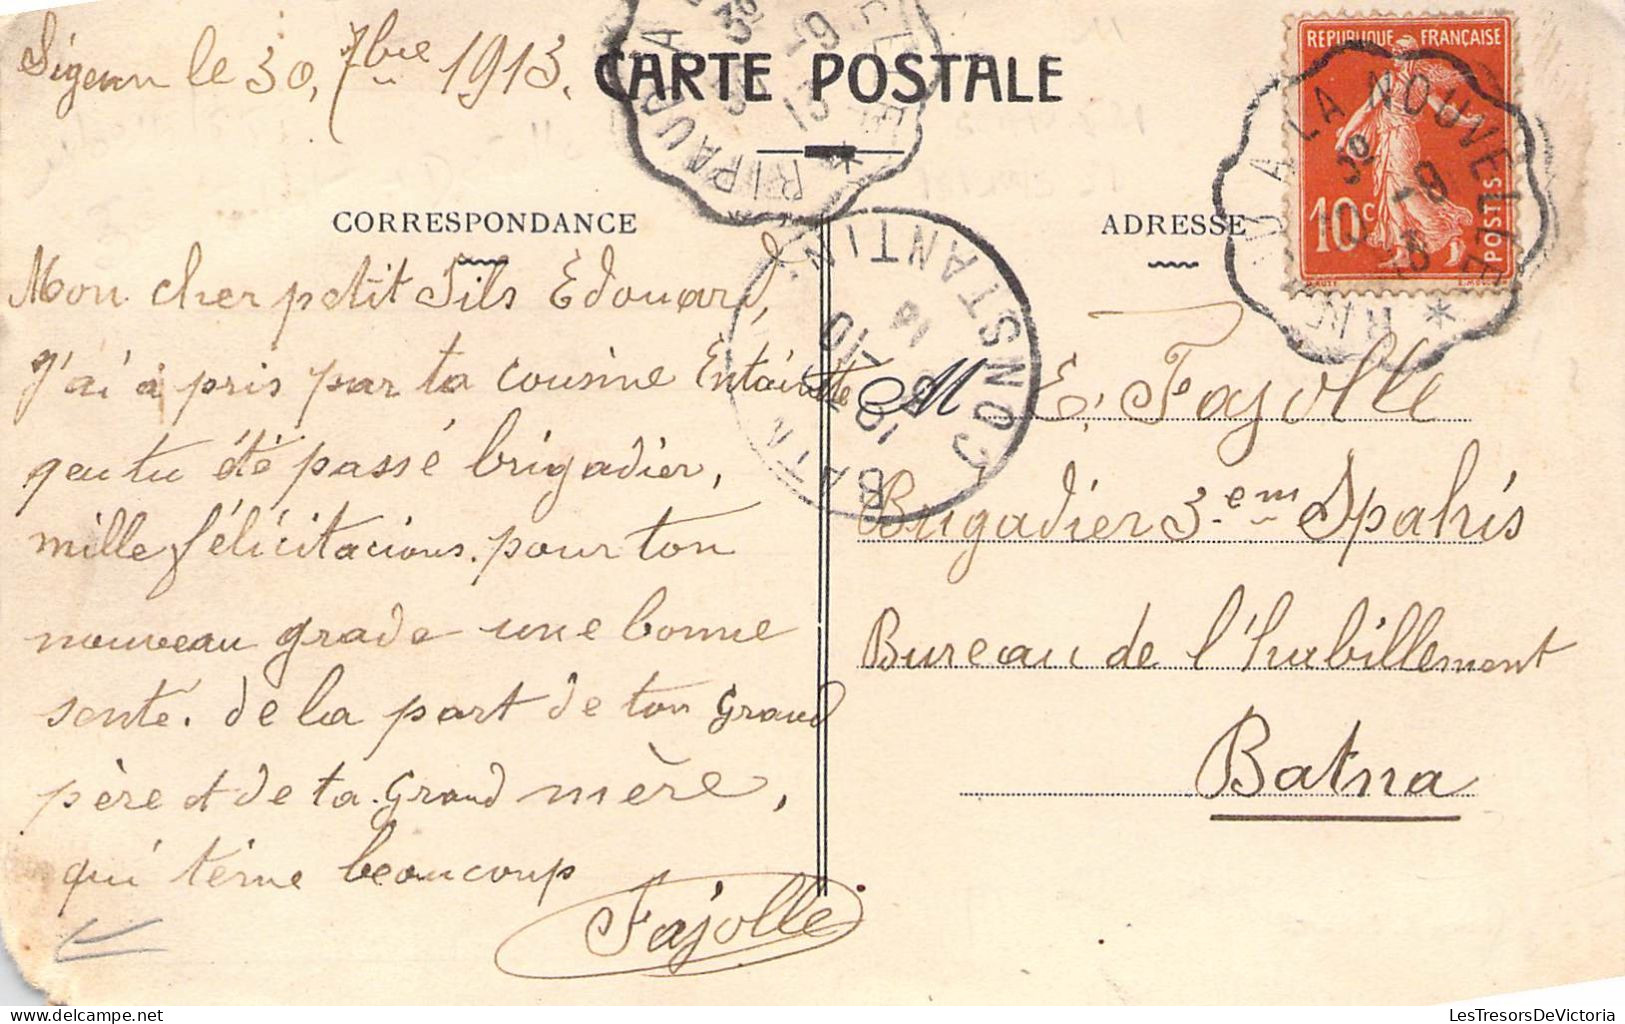 Sigean le 30, 7bre 1913.
CARTE POSTALE
CORRESPONDANCE
Mon cher petit fils Edouard,
j'ai a pris par ta cousine
que tu été passé brigadier,
mille félicitacions. pour ton
nouveau grade une bonne
sente. de la part de ton Grand
père et de ta Grand mère,
qui t'éme beaucoup
Fajolle
ADRESSE
M E. Fajolle
Brigadier 3.em Spahis
Bureau de l'habillement
Batna
REPUBLIQUE FRANÇAISE
10c
POSTES
A LA NOUVELLE
RIPAUD A
CONSTANTIN
BATN
LesTresorsDeVictoria